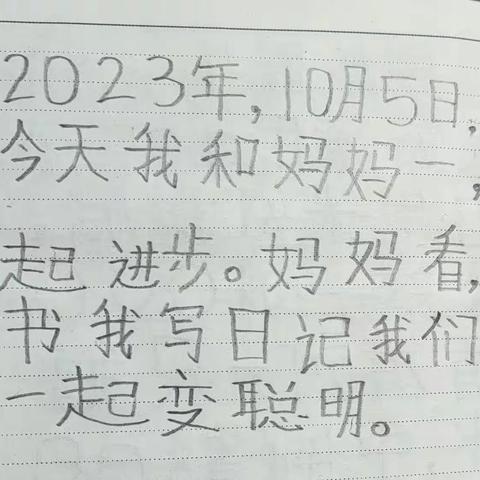 2023年,10月5日,
今天我和妈妈一,
起进步。妈妈看,
书我写日记我们
一起变聪明。